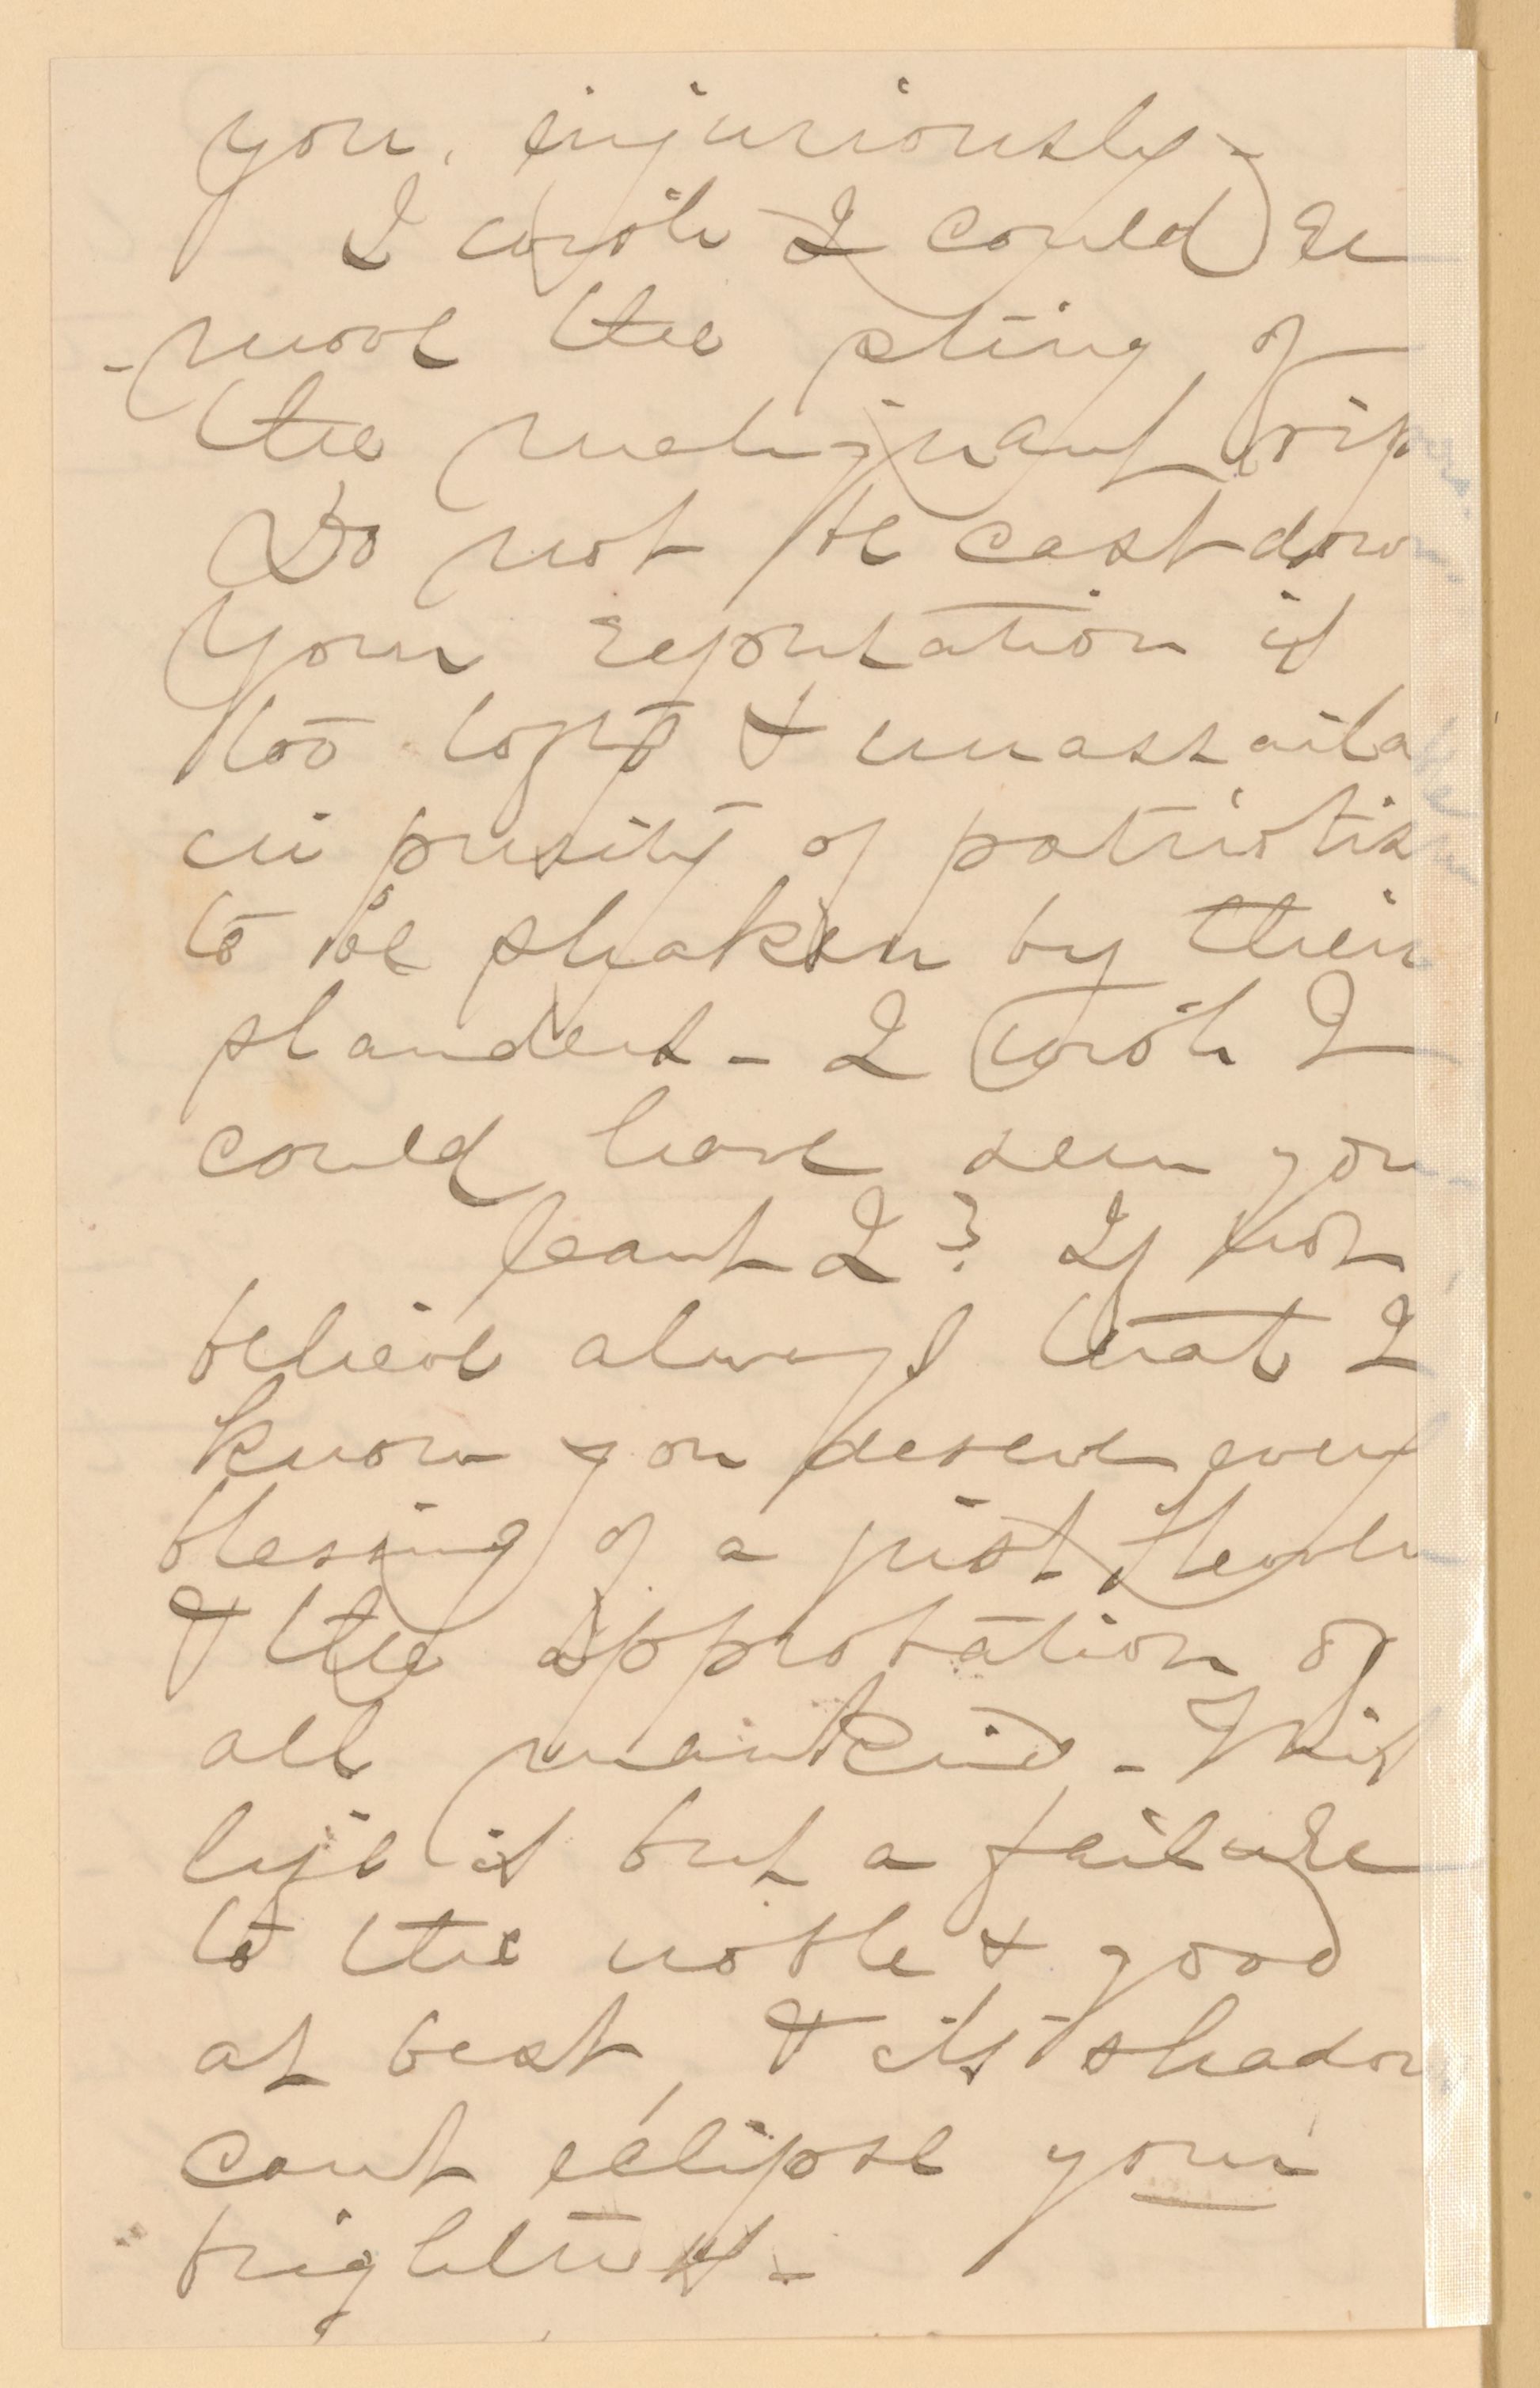 you, injuriously -
I wish I could re
- move the sting of
the malignant vip
Do not be cast down
Your reputation is
too lofty & unassaila
in purity of patriotis
to be shaken by their
slanders - I wish I
could have seen you
Can't I? If not
believe always that I
know you deserve every
blessing of a just Heaven
& the approbation of
all mankind - This
life is but a failure
to the noble & good
at best, & its shadow
cant eclipse your
brightness -